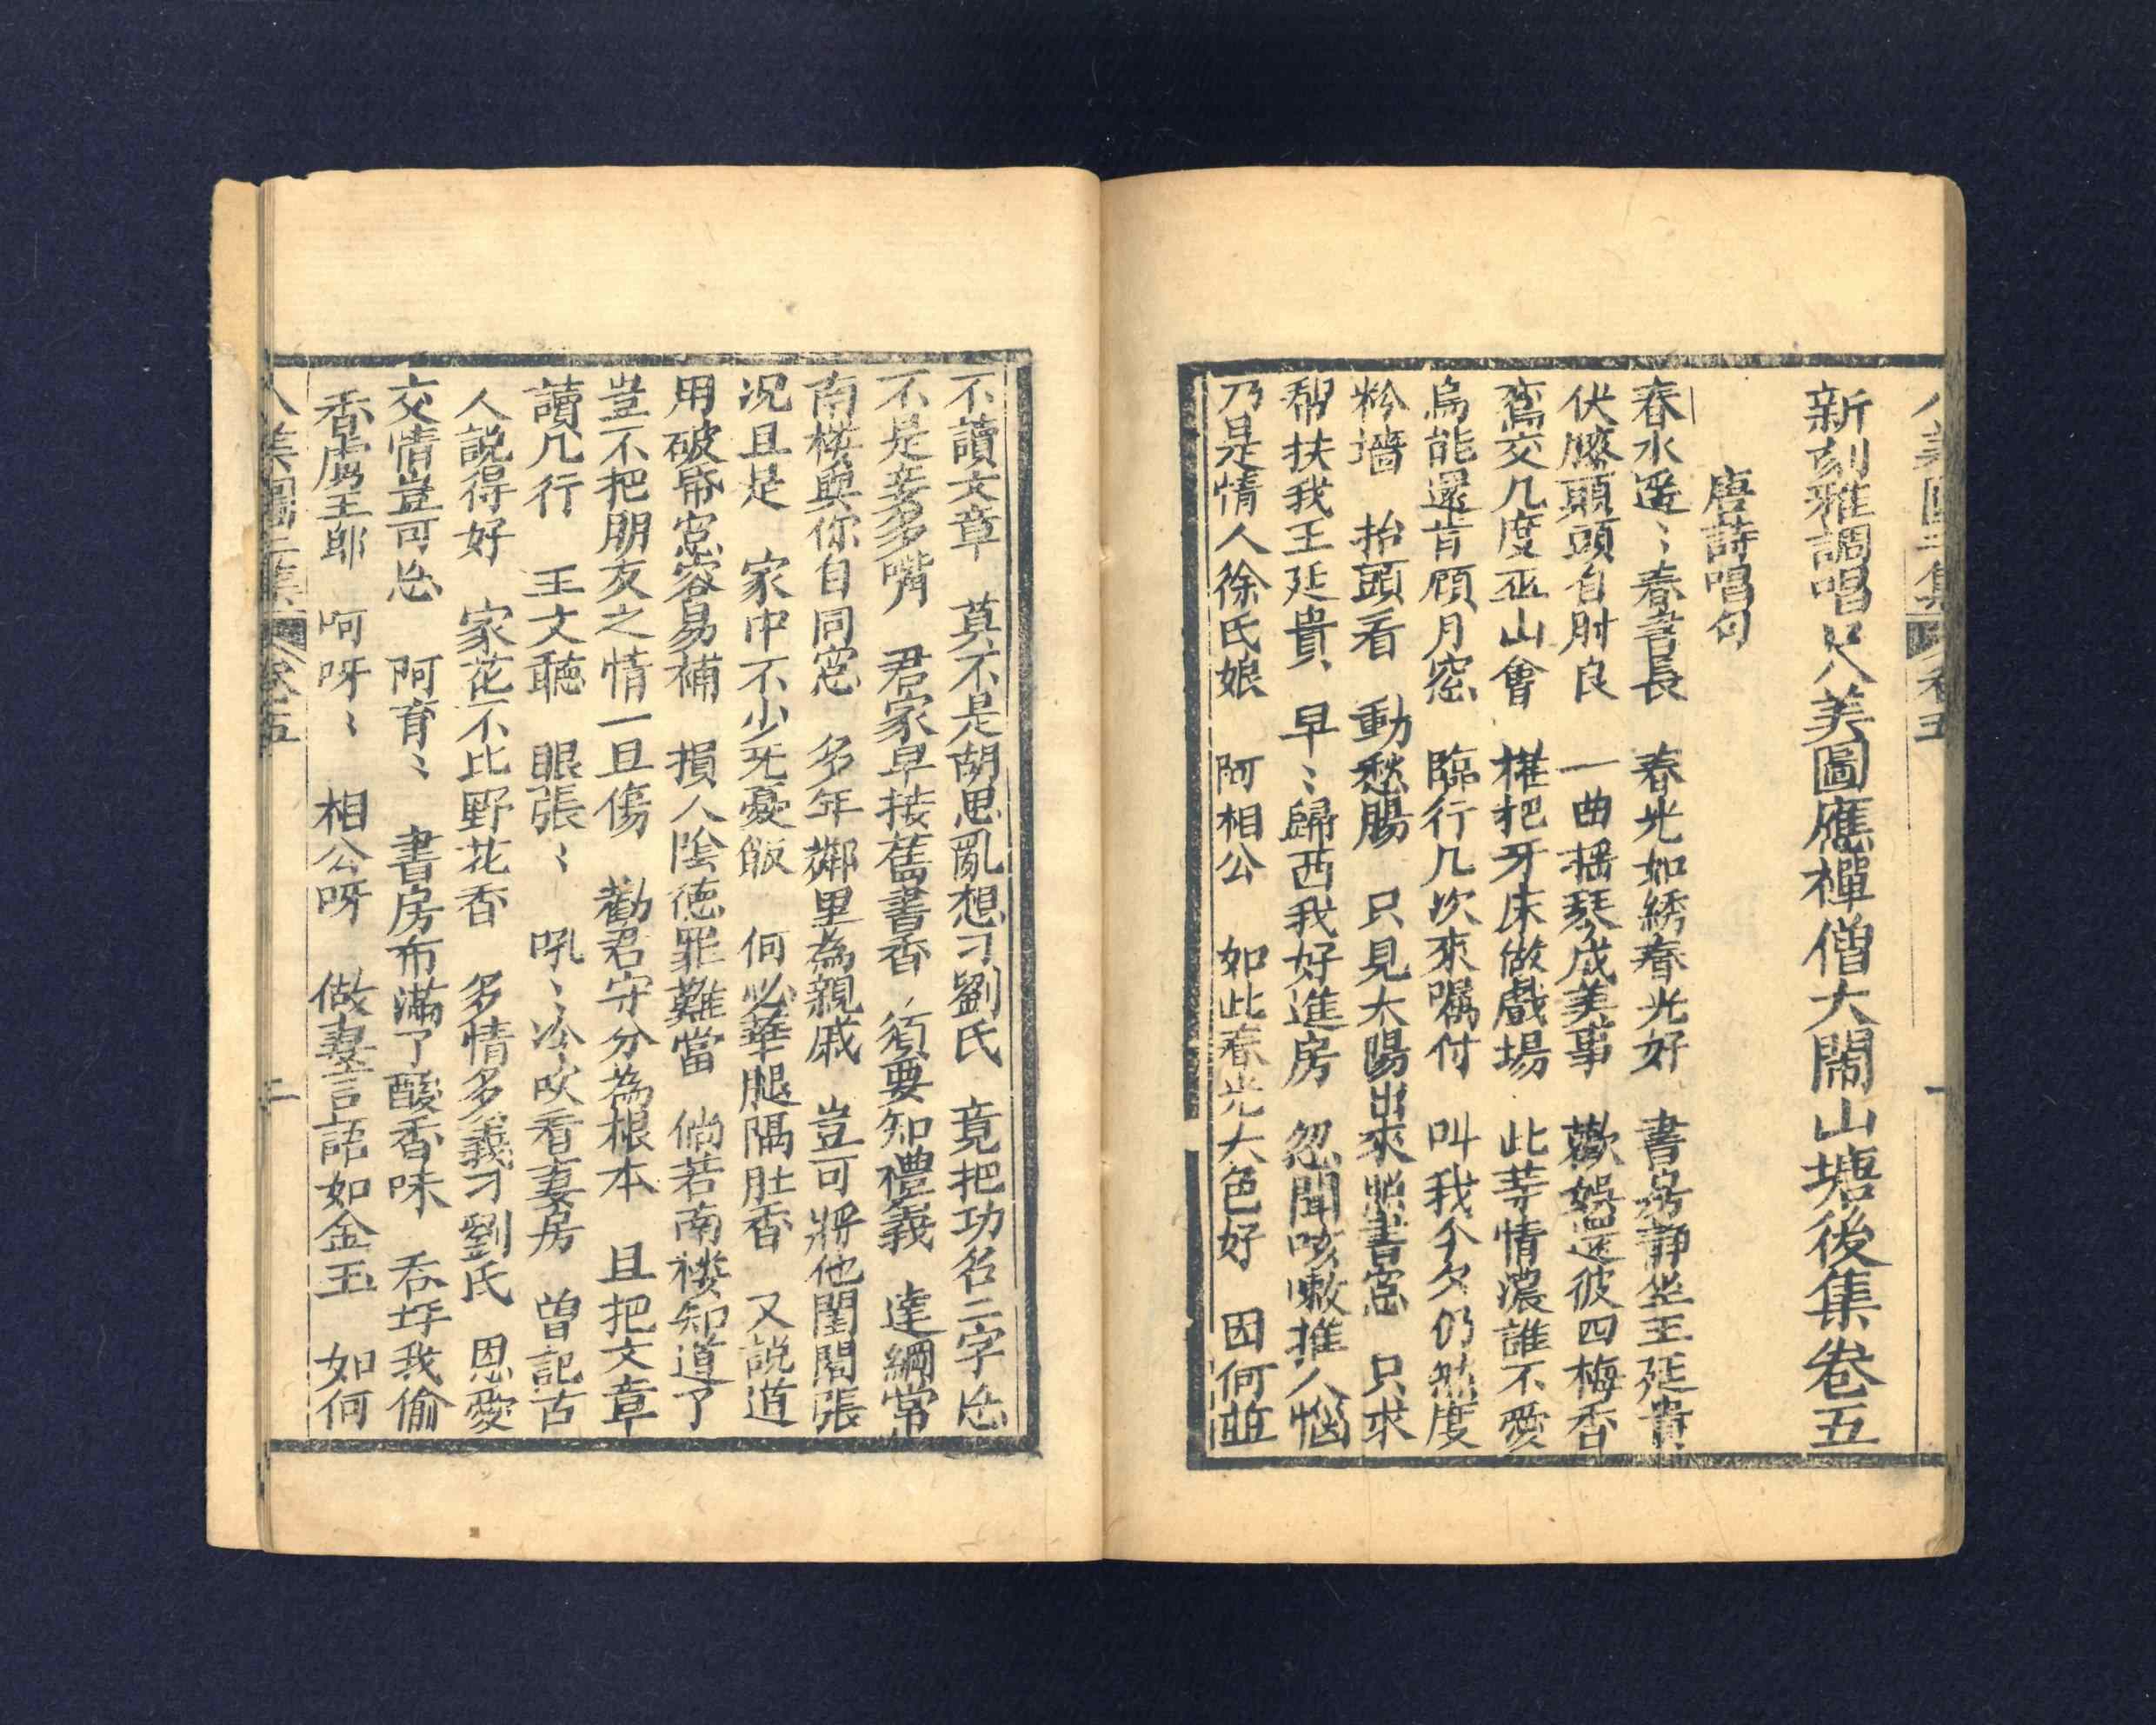 新刻雅調唱口八美圖應襌僧大閙山塘後集卷五
唐詩唱句
春水遥〻春晝長　春光如綉春光好　書房靜坐王延貴
伏腋頭頭自肘良　一曲揺琴成美事　歡娛還彼四梅香
鴛交几度巫山會　權把牙床做戲場　此等情濃誰不愛
烏能還肯顧月窓　臨行几次來嘱付　叫我今夕仍然度
粉墻　抬頭看　動愁腸　只見太陽出來照書窓　只求
帮扶我王延貴　早〻歸西我好進房　忽聞咳嗽推人惱
乃是情人徐氏娘　阿相公　如此春光大色好　因何並
不讀文章　莫不是胡思亂想刁劉氏　竟把功名二字忘
不是妾多嘴　君家早接舊書香　須要知禮義　達綱常
南楼與你自同窓　多年鄰里為親戚　豈可將他閨閣張
况且是　家中不少旡憂飯　何必華腿隔肚香　又説道
用破帋窓容易補　損人陰德罪難當　倘若南楼知道了
豈不把朋友之情一旦傷　勸君守分為根本　且把文章
讀几行　王文聽　眼張〻　吼〻冷吹看妻房　曾記古
人説得好　家花不比野花香　多情多義刁劉氏　恩愛
交情豈可忘　阿育〻　書房布滿了酸香味　吞玗我偷
香虜王郎　呵呀〻　相公呀　做妻言語如金玉　如何
八美圖二集　卷五　二